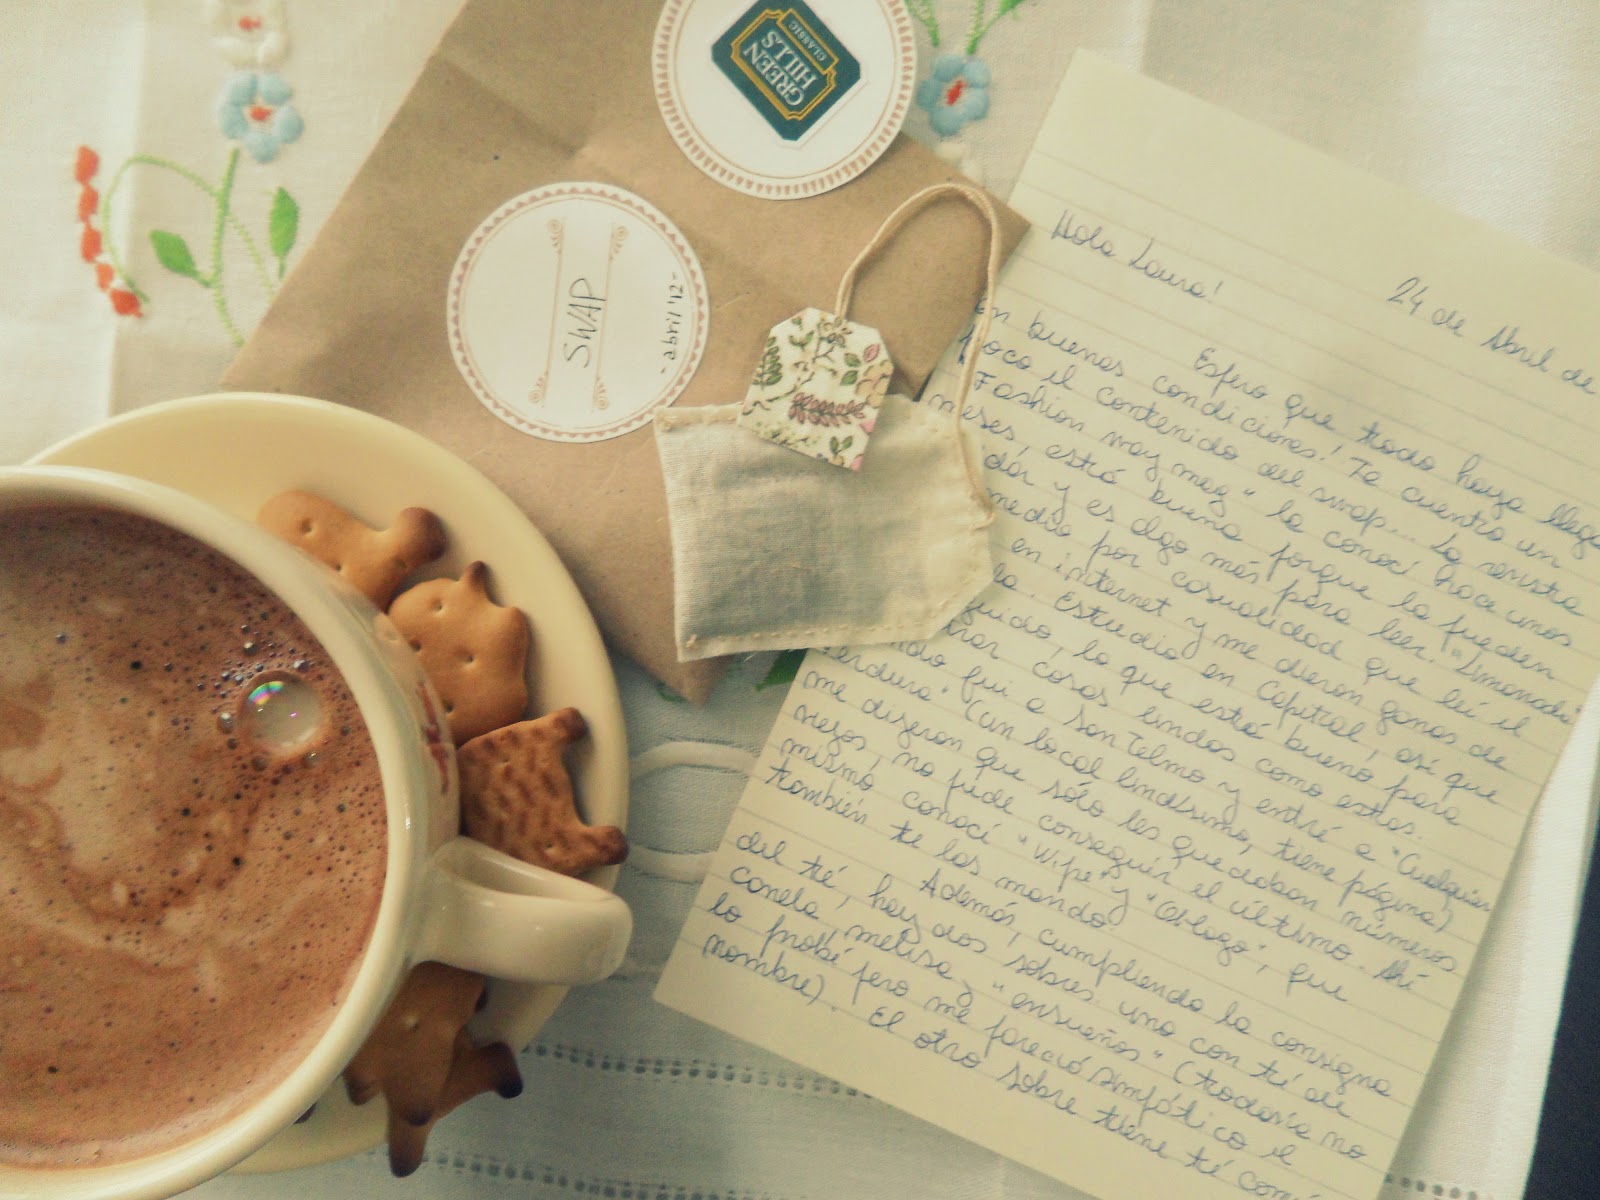 GREEN
HILLS
CLASSIC
SWAP
- abril '12 -
24 de Abril de
Hola Laura!
Espero que todo haya llega
en buenas condiciones! Te cuento un
poco el contenido del swap... La revista
Fashion way mag" la conocí hace unos
meses, está buena porque la pueden
dar y es algo más para leer. "Limonada"
medio por casualidad que leí el
en internet y me dieron ganas de
la. Estudio en Capital, así que
guido, lo que está bueno para
rar cosas lindas como estas.
ndo fui a San Telmo y entré a "Cualquier
erdura" (un local lindísimo, tiene página)
me dijeron que sólo les quedaban números
viejos, no pude conseguir el último. Ahí
mismo conocí "Wipe" y "Oblogo", que
también te los mando.
Además, cumpliendo la consigna
del té, hay dos sobres: uno con té de
canela, melisa y "ensueños" (todavía no
lo probé pero me pareció simpático el
nombre). El otro sobre tiene té con